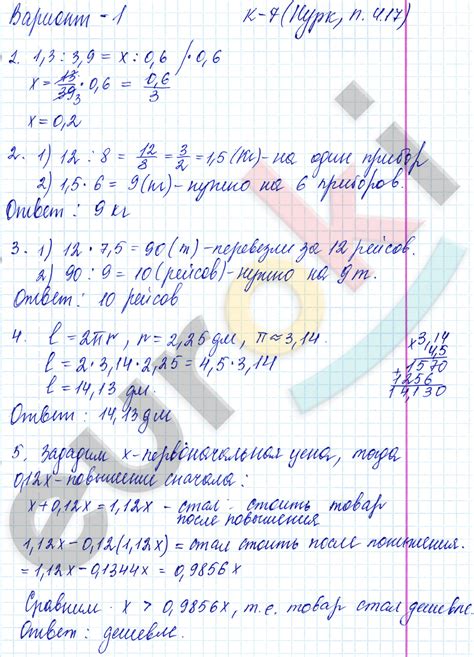 Вариант - 1 К-7 (Нурк, п. 4.17)
1. 1,3 : 3,9 = x : 0,6 /·0,6
x = 13/39 3 · 0,6 = 0,6/3
x = 0,2
2. 1) 12 : 8 = 12/8 = 3/2 = 1,5 (кг) - на один прибор
2) 1,5 · 6 = 9 (кг) - нужно на 6 приборов.
Ответ : 9 кг
3. 1) 12 · 7,5 = 90 (т) - перевезли за 12 рейсов.
2) 90 : 9 = 10 (рейсов) - нужно на 9т.
Ответ: 10 рейсов
4. l = 2πr, r = 2,25 дм, π ≈ 3,14.
l = 2 · 3,14 · 2,25 = 4,5 · 3,14
l = 14,13 дм.
Ответ: 14,13 дм
× 3,14
4,5
+ 1570
1256
14,130
5. Зададим x - первоначальная цена, тогда
0,12x - повышение сначала:
x + 0,12x = 1,12x - стал стоить товар
после повышения
1,12x - 0,12(1,12x) = стал стоить после понижения.
= 1,12x - 0,1344x = 0,9856x
Сравним x > 0,9856x, т.е. товар стал дешевле.
Ответ: дешевле.
euroki